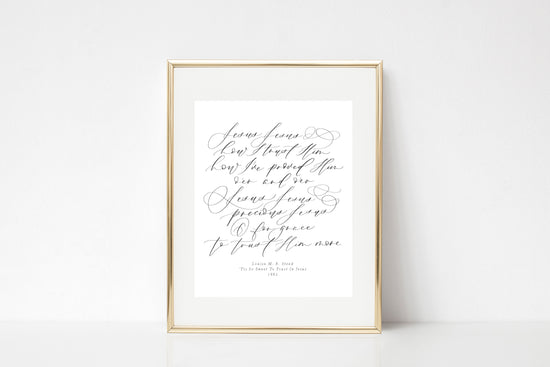 Jesus Jesus
how I trust Him
how I've proved Him
o'er and o'er
Jesus Jesus
precious Jesus
O for grace
to trust Him more
Louisa M. R. Stead
'Tis So Sweet To Trust in Jesus
1882